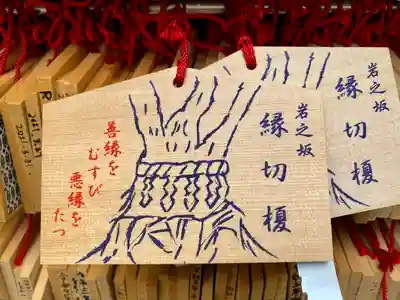 岩之坂
縁切榎
善縁を
むすび
悪縁を
たつ
岩之坂
縁切榎